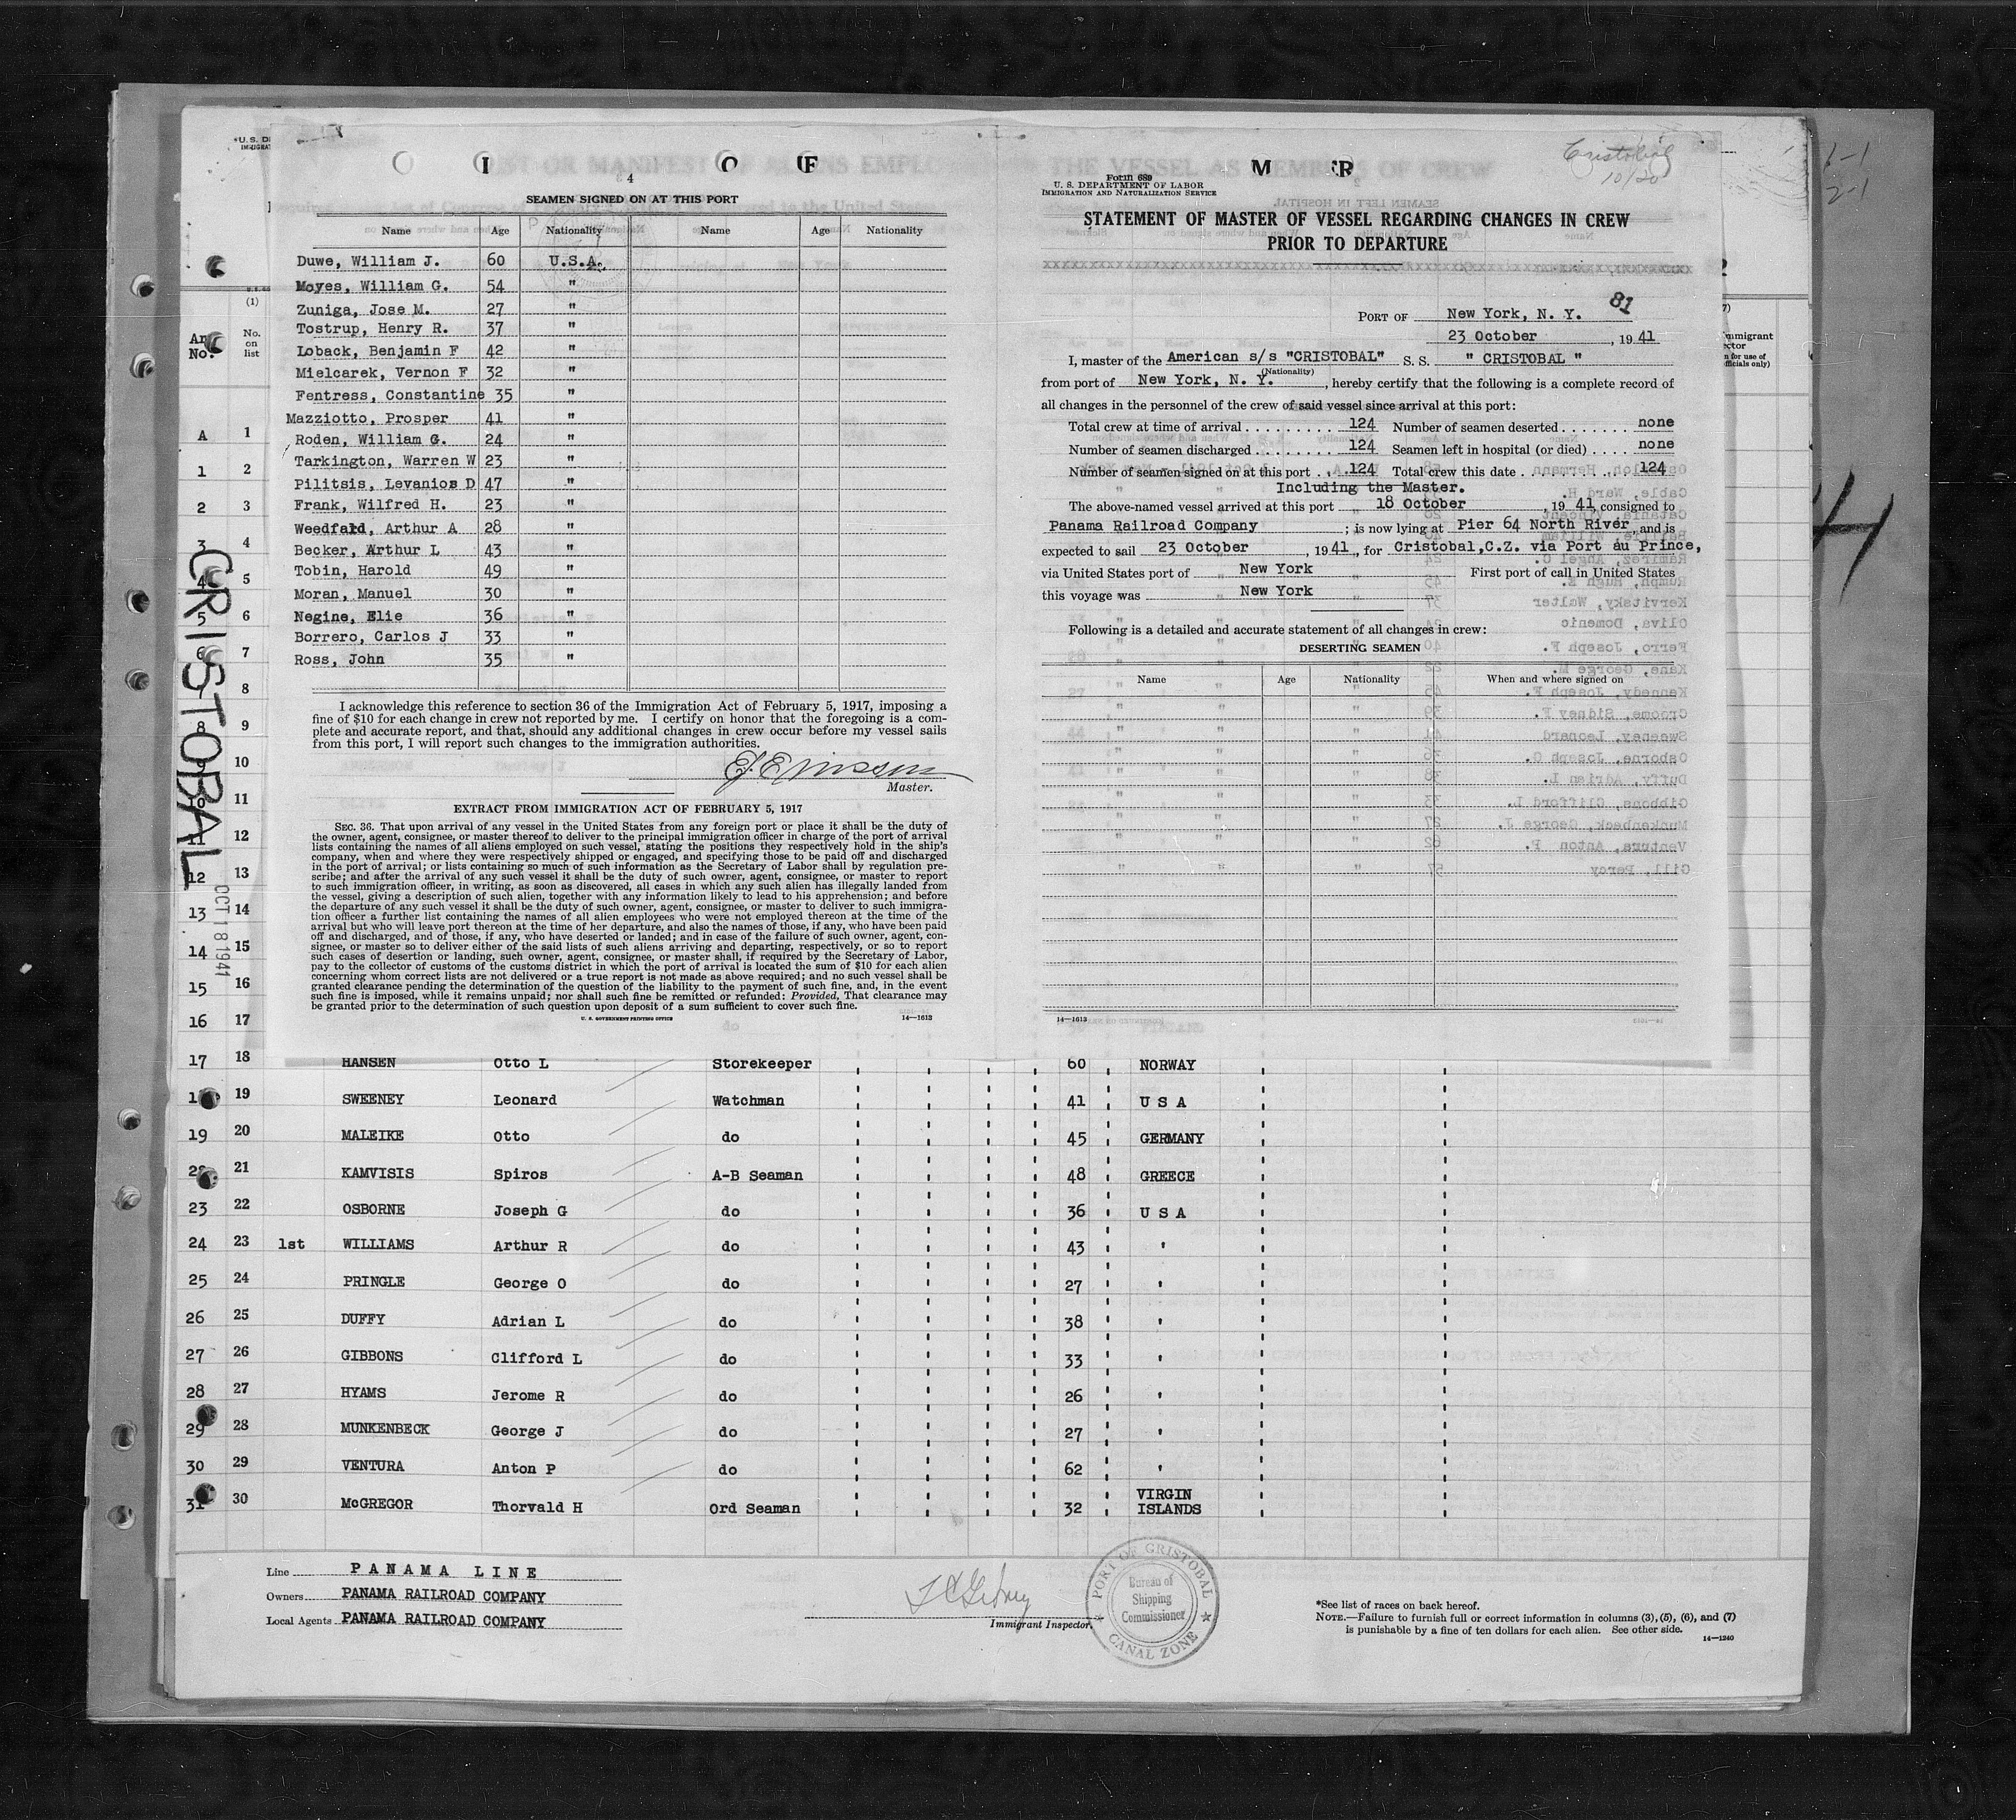 4
SEAMEN SIGNED ON AT THIS PORT
Name Age Nationality Name Age Nationality
Duwe, William J. 60 U.S.A.
Moyes, William G. 54 "
Zuniga, Jose M. 27 "
Tostrup, Henry R. 37 "
Loback, Benjamin F 42 "
Mielcarek, Vernon F 32 "
Fentress, Constantine 35 "
Mazziotto, Prosper 41 "
Roden, William G. 24 "
Tarkington, Warren W 23 "
Pilitsis, Levanios D 47 "
Frank, Wilfred H. 23 "
Weedfald, Arthur A 28 "
Becker, Arthur L 43 "
Tobin, Harold 49 "
Moran, Manuel 30 "
Negine, Elie 36 "
Borrero, Carlos J 33 "
Ross, John 35 "
I acknowledge this reference to section 36 of the Immigration Act of February 5, 1917, imposing a
fine of $10 for each change in crew not reported by me. I certify on honor that the foregoing is a com-
plete and accurate report, and that, should any additional changes in crew occur before my vessel sails
from this port, I will report such changes to the immigration authorities.
Master.
EXTRACT FROM IMMIGRATION ACT OF FEBRUARY 5, 1917
SEC. 36. That upon arrival of any vessel in the United States from any foreign port or place it shall be the duty of
the owner, agent, consignee, or master thereof to deliver to the principal immigration officer in charge of the port of arrival
lists containing the names of all aliens employed on such vessel, stating the positions they respectively hold in the ship's
company, when and where they were respectively shipped or engaged, and specifying those to be paid off and discharged
in the port of arrival; or lists containing so much of such information as the Secretary of Labor shall by regulation pre-
scribe; and after the arrival of any such vessel it shall be the duty of such owner, agent, consignee, or master to report
to such immigration officer, in writing, as soon as discovered, all cases in which any such alien has illegally landed from
the vessel, giving a description of such alien, together with any information likely to lead to his apprehension; and before
the departure of any such vessel it shall be the duty of such owner, agent, consignee, or master to deliver to such immigra-
tion officer a further list containing the names of all alien employees who were not employed thereon at the time of the
arrival but who will leave port thereon at the time of her departure, and also the names of those, if any, who have been paid
off and discharged, and of those, if any, who have deserted or landed; and in case of the failure of such owner, agent, con-
signee, or master so to deliver either of the said lists of such aliens arriving and departing, respectively, or so to report
such cases of desertion or landing, such owner, agent, consignee, or master shall, if required by the Secretary of Labor,
pay to the collector of customs of the customs district in which the port of arrival is located the sum of $10 for each alien
concerning whom correct lists are not delivered or a true report is not made as above required; and no such vessel shall be
granted clearance pending the determination of the question of the liability to the payment of such fine, and, in the event
such fine is imposed, while it remains unpaid; nor shall such fine be remitted or refunded: Provided, That clearance may
be granted prior to the determination of such question upon deposit of a sum sufficient to cover such fine.
U. S. GOVERNMENT PRINTING OFFICE 14—1613
Cristobal
10/20
Form 689
U. S. DEPARTMENT OF LABOR
IMMIGRATION AND NATURALIZATION SERVICE
STATEMENT OF MASTER OF VESSEL REGARDING CHANGES IN CREW
PRIOR TO DEPARTURE
81
PORT OF New York, N. Y.
23 October, 1941
I, master of the American s/s "CRISTOBAL" S. S. " CRISTOBAL "
(Nationality)
from port of New York, N. Y., hereby certify that the following is a complete record of
all changes in the personnel of the crew of said vessel since arrival at this port:
Total crew at time of arrival 124 Number of seamen deserted none
Number of seamen discharged 124 Seamen left in hospital (or died) none
Number of seamen signed on at this port 124 Total crew this date 124
Including the Master.
The above-named vessel arrived at this port 18 October, 1941, consigned to
Panama Railroad Company; is now lying at Pier 64 North River and is
expected to sail 23 October, 1941, for Cristobal,C.Z. via Port au Prince,
via United States port of New York First port of call in United States
this voyage was New York
Following is a detailed and accurate statement of all changes in crew:
DESERTING SEAMEN
Name Age Nationality When and where signed on
14—1613
CRISTOBAL
OCT 18 1941
(1)
No. on list
A 1
1 2
2 3
3 4
4 5
5 6
6 7
7 8
8 9
9 10
10 11
11 12
12 13
13 14
14 15
15 16
16 17
17 18 HANSEN Otto L Storekeeper 60 NORWAY
19 SWEENEY Leonard Watchman 41 U S A
19 20 MALEIKE Otto do 45 GERMANY
21 KAMVISIS Spiros A-B Seaman 48 GREECE
23 22 OSBORNE Joseph G do 36 U S A
24 23 1st WILLIAMS Arthur R do 43 "
25 24 PRINGLE George O do 27 "
26 25 DUFFY Adrian L do 38 "
27 26 GIBBONS Clifford L do 33 "
28 27 HYAMS Jerome R do 26 "
29 28 MUNKENBECK George J do 27 "
30 29 VENTURA Anton P do 62 "
31 30 McGREGOR Thorvald H Ord Seaman 32 VIRGIN ISLANDS
Line PANAMA LINE
Owners PANAMA RAILROAD COMPANY
Local Agents PANAMA RAILROAD COMPANY
Immigrant Inspector.
PORT OF CRISTOBAL
Bureau of
Shipping
Commissioner
CANAL ZONE
*See list of races on back hereof.
NOTE.—Failure to furnish full or correct information in columns (3), (5), (6), and (7)
is punishable by a fine of ten dollars for each alien. See other side.
14—1240